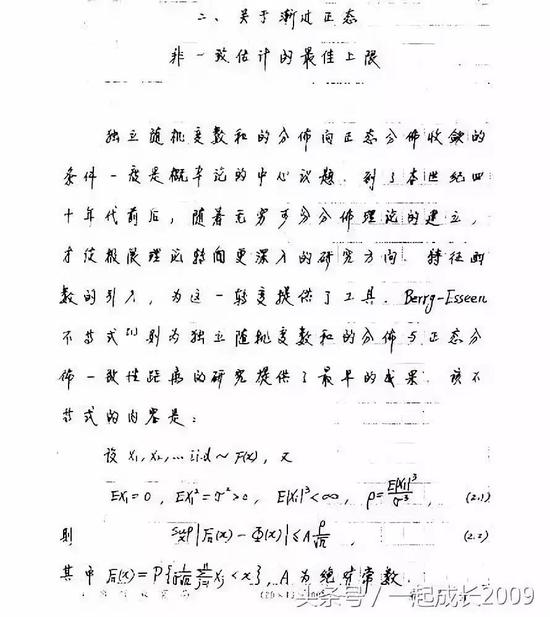 二、关于渐近正态
非一致估计的最佳上限
独立随机变数和的分佈向正态分佈收敛的
条件一度是概率论的中心议题.到了本世纪四
十年代前后,随着无穷可分分佈理论的建立,
才使极限理论转向更深入的研究方向.特征函
数的引入,为这一转变提供了工具.Berry-Esseen
不等式[1]则为独立随机变数和的分佈与正态分
佈一致性距离的研究提供了最早的成果.该不
等式的内容是:
设 X₁,X₂,… iid~F(x),又
EX₁=0, EX₁²=σ²>0, E|X₁|³<∞, ρ=E|X₁|³/σ³, (2.1)
则 sup_x|Fₙ(x)-Φ(x)|≤Aρ/√n, (2.2)
其中 Fₙ(x)=P{1/(σ√n) ∑_{j=1}^n Xj<x},A为绝对常数.
头条号/一起成长2009